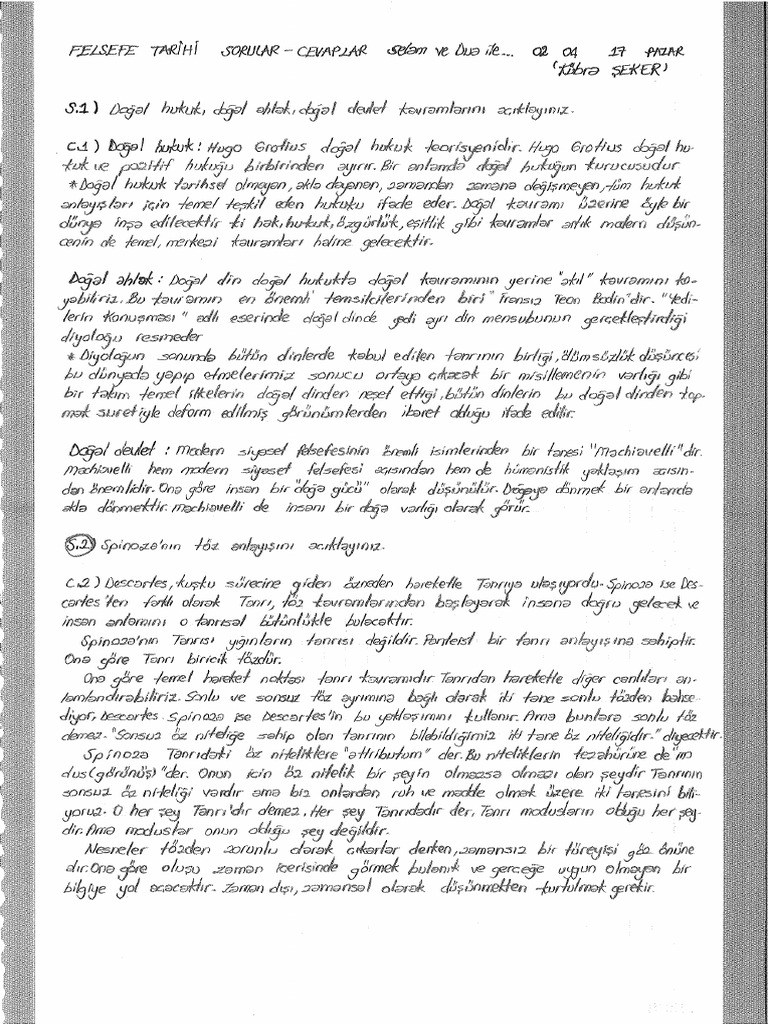 FELSEFE TARİHİ SORULAR - CEVAPLAR Selam ve Dua ile... 02 04 17 PAZAR
(Kübra ŞEKER)
S.1) Doğal hukuk, doğal ahlak, doğal devlet kavramlarını açıklayınız.
C.1) Doğal hukuk: Hugo Grotius doğal hukuk teorisyenidir. Hugo Grotius doğal hu-
kuk ve pozitif hukuğu birbirinden ayırır. Bir anlamda doğal hukuğun kurucusudur
* Doğal hukuk tarihsel olmayan, akla dayanan, zamandan zamana değişmeyen, tüm hukuk
anlayışları için temel teşkil eden hukuku ifade eder. Doğal kavramı üzerine öyle bir
dünya inşa edilecektir ki hak, hukuk, özgürlük, eşitlik gibi kavramlar artık modern düşün-
cenin de temel, merkezi kavramları haline gelecektir.
Doğal ahlak: Doğal din doğal hukukta doğal kavramının yerine "akıl" kavramını ko-
yabiliriz. Bu kavramın en önemli temsilcilerinden biri "Fransız Jean Bodin"dir. "Yedi-
lerin Konuşması" adlı eserinde doğal dinde yedi ayrı din mensubunun gerçekleştirdiği
diyoloğu resmeder
* Diyoloğun sonunda bütün dinlerde kabul edilen tanrının birliği, ölümsüzlük düşüncesi
bu dünyada yapıp etmelerimiz sonucu ortaya çıkacak bir misillemenin varlığı gibi
bir takım temel ilkelerin doğal dinden neşet ettiği, bütün dinlerin bu doğal dinden kop-
mak suretiyle deform edilmiş görünümlerden ibaret olduğu ifade edilir.
Doğal devlet: Modern siyaset felsefesinin önemli isimlerinden bir tanesi "Machiavelli"dir.
Machiavelli hem modern siyaset felsefesi açısından hem de hümanistlik yaklaşım açısın-
dan önemlidir. Ona göre insan bir "doğa gücü" olarak düşünülür. Doğaya dönmek bir anlamda
akla dönmektir. Machiavelli de insanı bir doğa varlığı olarak görür.
S.2) Spinoza'nın töz anlayışını açıklayınız.
C.2) Descartes, kuşku sürecine giden özneden hareketle Tanrıya ulaşıyordu. Spinoza ise Des-
cartes'ten farklı olarak Tanrı, töz kavramlarından başlayarak insana doğru gelecek ve
insan anlamını o tanrısal bütünlükte bulacaktır.
Spinoza'nın Tanrısı yığınların tanrısı değildir. Panteist bir tanrı anlayışına sahiptir.
Ona göre Tanrı biricik tözdür.
Ona göre temel hareket noktası tanrı kavramıdır Tanrıdan hareketle diğer canlıları an-
lamlandırabiliriz. Sonlu ve sonsuz töz ayrımına bağlı olarak iki tane sonlu tözden bahse-
diyor, Descartes. Spinoza ise Descartes'in bu yaklaşımını kullanır. Ama bunlara sonlu töz
demez. "Sonsuz öz niteliğe sahip olan tanrının bilebildiğimiz iki tane öz niteliğidir." diyecektir.
Spinoza Tanrıdaki öz niteliklere "attributum" der. Bu niteliklerin tezahürüne de "mo
dus(görünüş)" der. Onun için öz nitelik bir şeyin olmazsa olmazı olan şeydir Tanrının
sonsuz öz niteliği vardır ama biz onlardan ruh ve madde olmak üzere iki tanesini bili-
yoruz. O her şey Tanrı'dır demez. Her şey Tanrıdadır der, Tanrı modusların olduğu her şey-
dir. Ama moduslar onun olduğu şey değildir.
Nesneler tözden zorunlu olarak çıkarlar derken, zamansız bir türeyişi göz önüne
alır. Ona göre oluşu zaman içerisinde görmek bulanık ve gerçeğe uygun olmayan bir
bilgiye yol açacaktır. Zaman dışı, zamansal olarak düşünmekten kurtulmak gerekir.